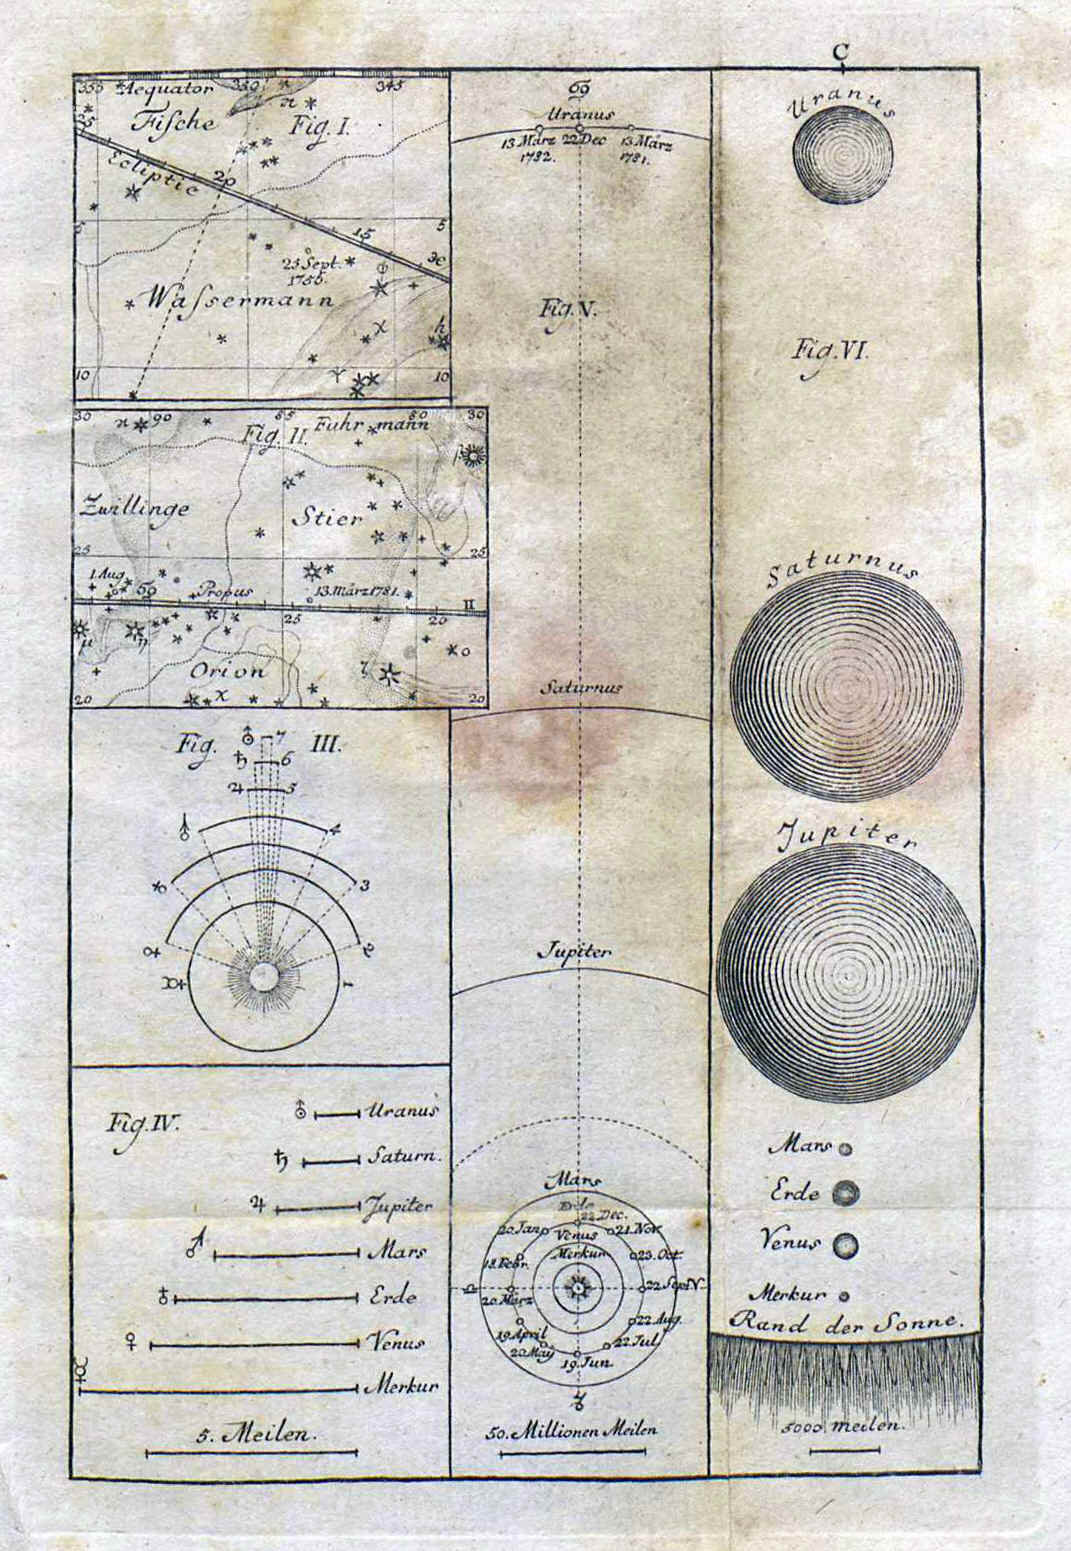 C
355 Aequator 350 345
Fische Fig. I.
Ecliptic
20
5 15 5
25 Sept.
1756.
Wassermann
χ
h
10 10
30 90 85 80 30
Fig. II. Fuhrmann
Zwillinge
Stier
25 25
1 Aug.
Propus 13. März 1781.
II
25 20
μ η
Orion ζ o
20 χ 20
Fig. III.
♅ 7
♄ 6
♃ 5
♂ 4
♁ 3
♀ 2
☿ 1
Fig. IV.
♅ Uranus
♄ Saturn.
♃ Jupiter
♂ Mars
♁ Erde
♀ Venus
☿ Merkur
5. Meilen.
♋
Uranus
13 März 22 Dec 13 März
1782. 1781.
Fig. V.
Saturnus
Jupiter
Mars
Erde
22 Dec.
20 Jan. 21 Nov.
Venus
Merkur 23. Oct.
18. Febr.
♈ 22 Sept.
20 März
19 April 22 Aug.
20 May 22 Jul.
19. Jun.
♑
50. Millionen Meilen
Uranus
Fig. VI.
Saturnus
Jupiter
Mars
Erde
Venus
Merkur
Rand der Sonne.
5000 meilen.